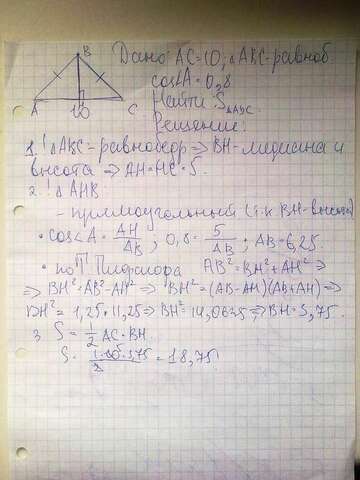 B
Дано: AC=10; △ABC-равноб
cos∠A=0,8
A 10 C
Найти: S△ABC
Решение:
1. ! △ABC-равнобедр ⇒ BH-медиана и
высота ⇒ AH=HC=5.
2. ! △AHB
- прямоугольный (т.к BH-высота)
• cos∠A = AH/AB ; 0,8 = 5/AB ; AB=6,25.
• по Т Пифагора AB²=BH²+AH² ⇒
⇒ BH²=AB²-AH² ⇒ BH²=(AB-AH)(AB+AH) ⇒
BH²= 1,25·11,25 ⇒ BH²=14,0625 ⇒ BH=3,75.
3. S = 1/2 AC·BH
S= 1·10·3,75/2 = 18,75!